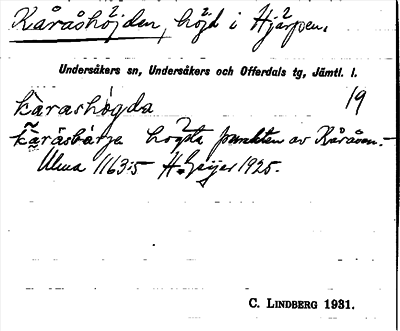 Kåråshöjden, höjd i Hjärpen.
Undersåkers sn, Undersåkers och Offerdals tg, Jämtl. l.
kåråshögda 19
kåråsbärje högsta punkten av Kåråsen.
Ulma 1163:5 H. Geijer 1925.
C. LINDBERG 1931.